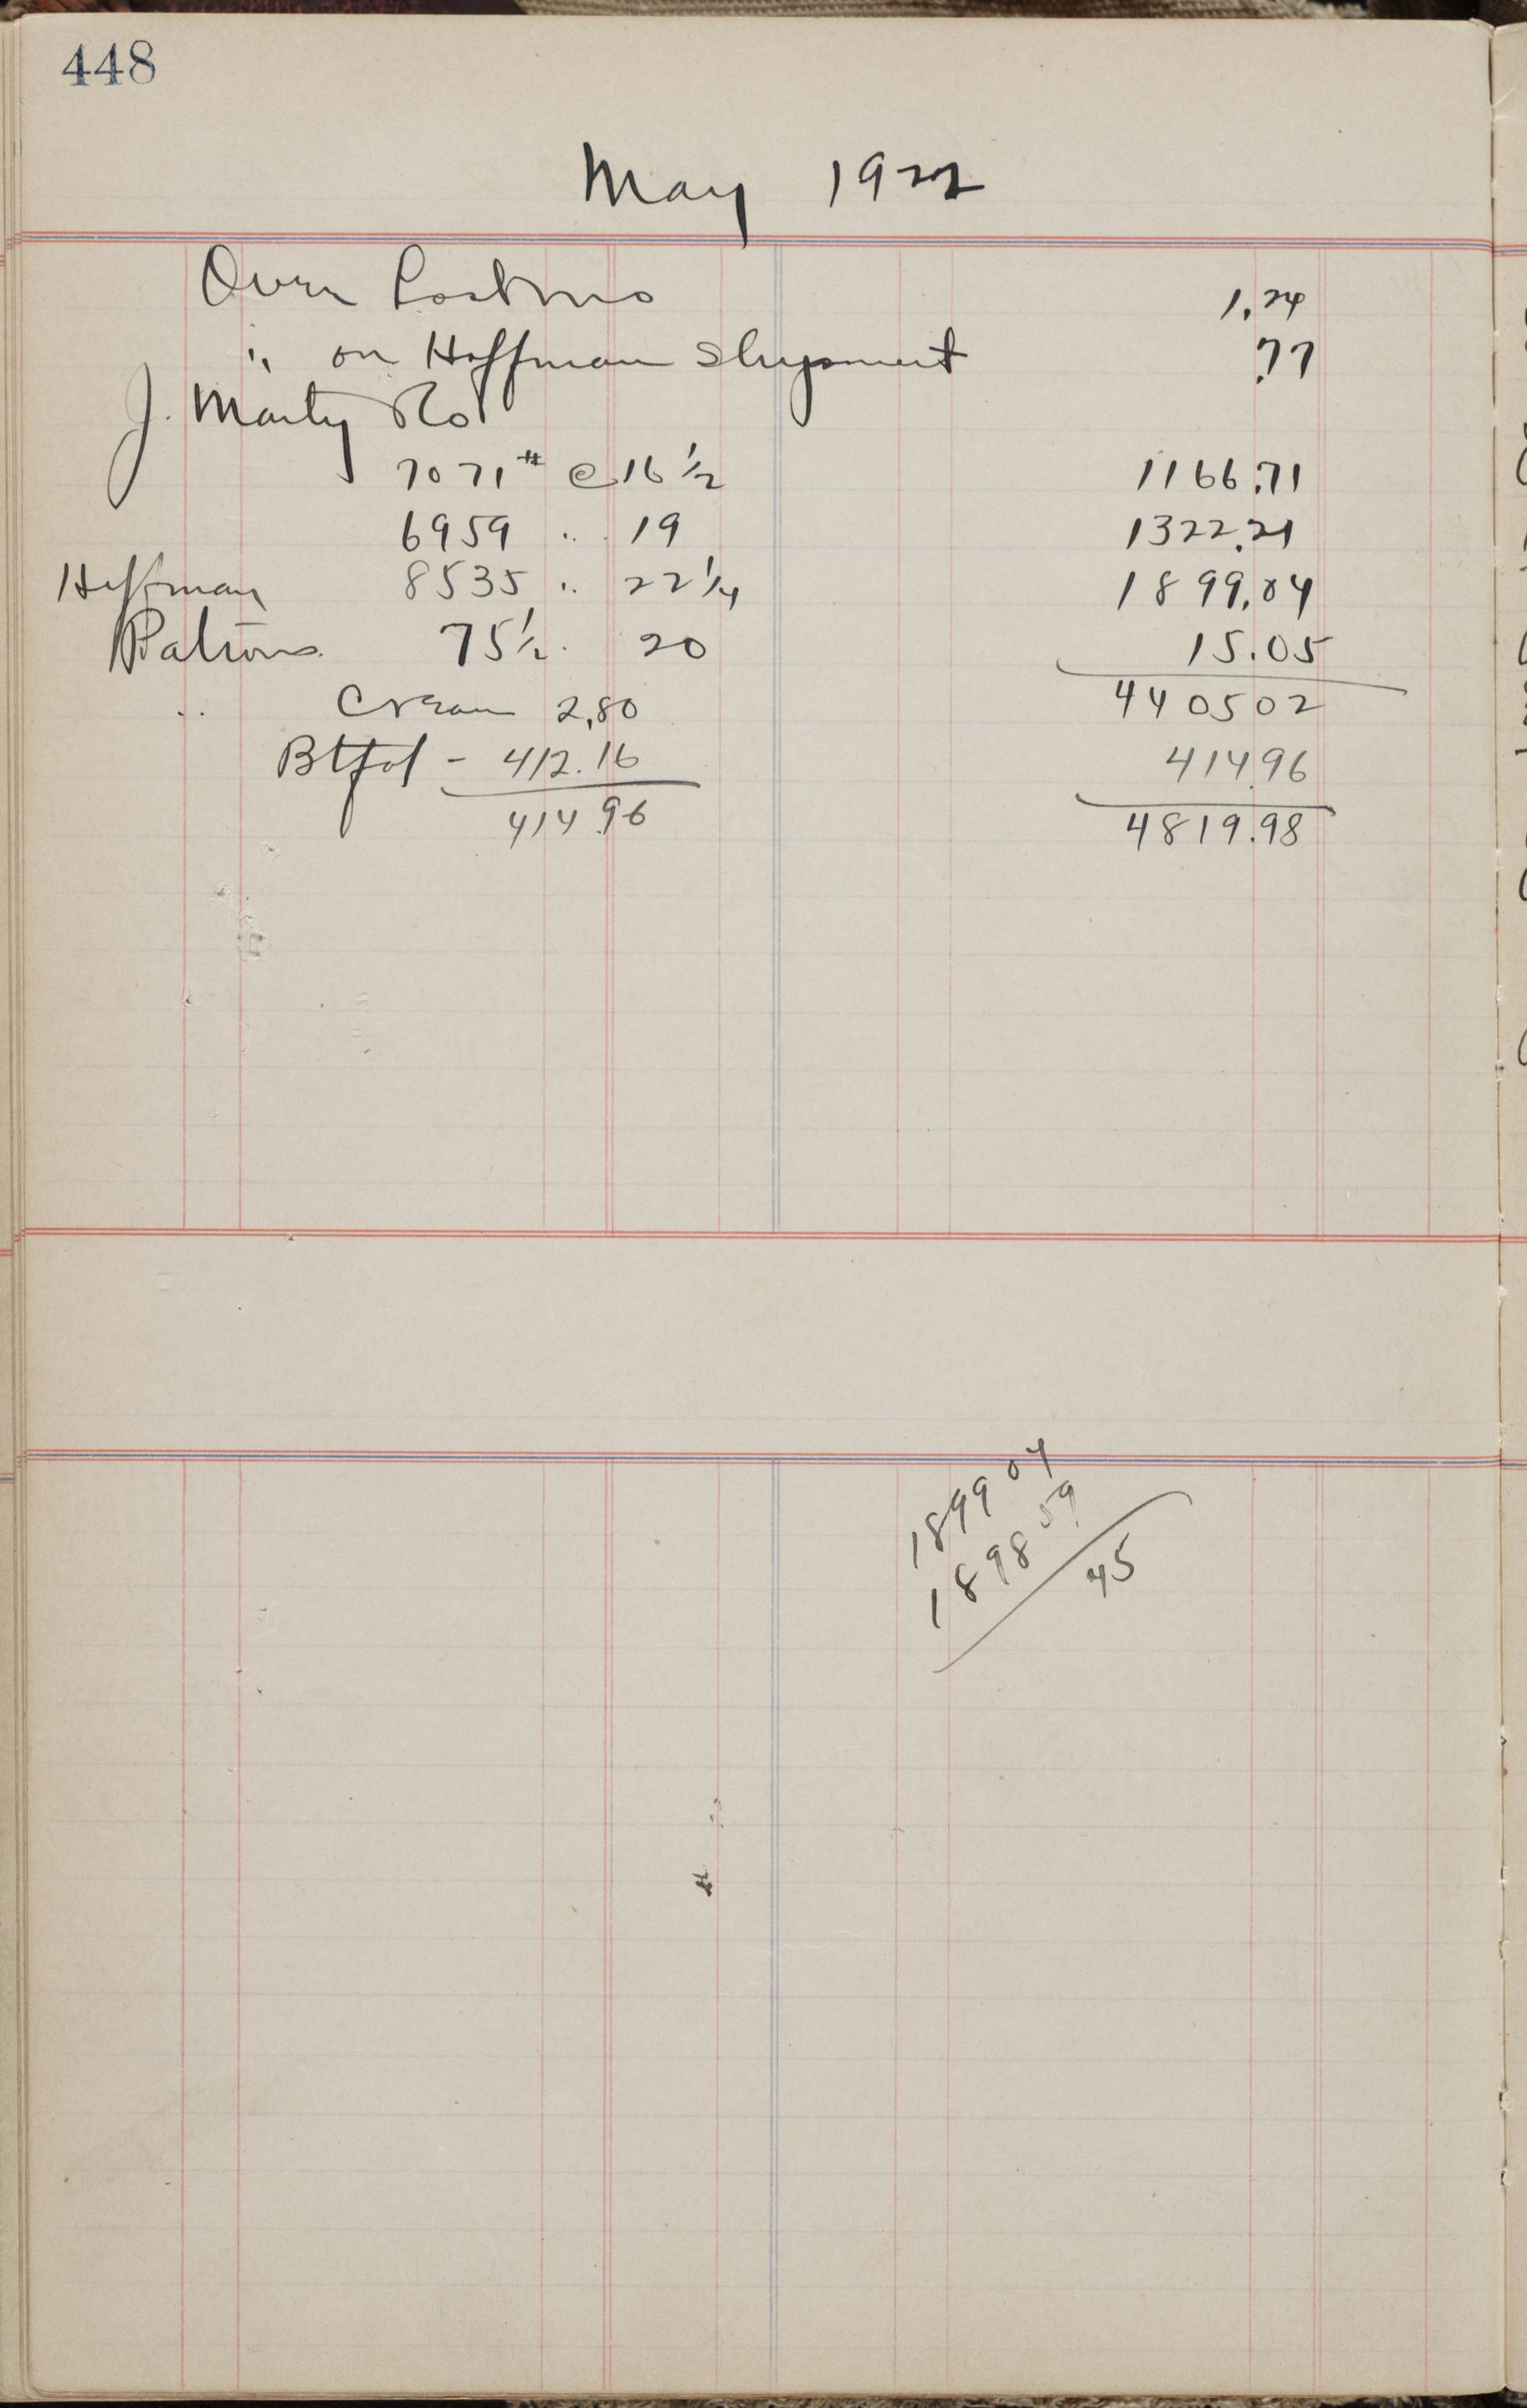 448
May 1922
Over Last mo 1.24
" on Hoffman Shipment .77
J. Marty & Co
7071# @ 16 1/2 1166.71
6959 " 19 1322.21
Hoffman 8535 " 22 1/4 1899.04
Patrons 75 1/2 " 20 15.05
" Cream 2.80 440502
Btfat - 412.16 414.96
414.96 4819.98
1899 04
1898 59
45